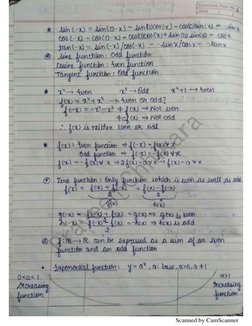 * sin(-x) = sin(0-x) = sin0 cos(x) - cos0 sin(x) = -sinx
cos(-x) = cos(0-x) = cos0 cos(x) + sin0 sin(x) = cosx
tan(-x) = sin(-x)/cos(-x) = -sinx/cosx = -tanx
Sine function: Odd function
Cosine function: Even function
Tangent function: Odd function
* x² → Even x³ → Odd x²+1 → Even
f(x) = x² + x³ → Even or odd?
f(-x) = x² - x³ ≠ f(x) → Not even
≠ -f(x) → Not odd
∴ f(x) is neither even or odd
* f(x): Even function → f(-x) = f(x) ∀x
Odd function → f(-x) = -f(x) ∀x
f(x) = -f(x) ∀x → 2f(x) = 0 ∀x → f(x) = 0 ∀x
Zero function: Only function which is even as well as odd
f(x) = f(x) + f(-x) + f(x) - f(-x)
2 2
g(x) h(x)
g(-x) = f(-x) + f(x) = g(x) ⇒ g(x) is even
h(-x) = f(-x) - f(x) = -h(x) ⇒ h(x) is odd
f: R → R can be expressed as a sum of an even
function and an odd function
* Exponential function: y = aˣ, a: base, a>0, a≠1
0<a<1 a>1
Decreasing Increasing
function function
Scanned by CamScanner